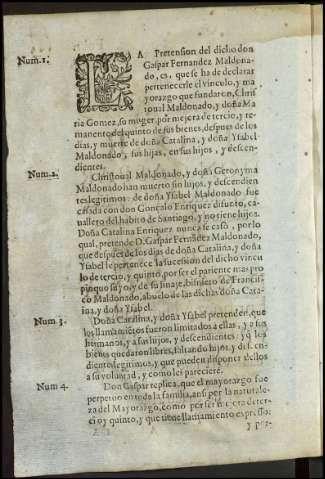 Num.1.
LA Pretension del dicho don
Gaspar Fernandez Maldona-
do, es, que se ha de declarar
pertenecerle el vinculo, y ma
yorazgo que fundaron, Chris
toual Maldonado, y doña Ma
ria Gomez su muger por mejora de tercio, y re-
manento del quinto de sus bienes, despues de los
dias, y muerte de doña Catalina, y doña Ysabel
Maldonado, sus hijas, en sus hijos, y descen-
dientes.
Num.2.
Christoual Maldonado, y doña Geronyma
Maldonado han muerto sin hijos, y descendien
tes legitimos: de doña Ysabel Maldonado fue
casada con don Gonzalo Enriquez difunto, ca-
uallero del habito de Santiago, y no tiene hijos.
Doña Catalina Enriquez nunca se casò, por lo
qual, pretende D. Gaspar Fernãdez Maldonado,
que despues de los dias de doña Catalina, y doña
Ysabel le pertenece la sucession del dicho vincu
lo de tercio, y quinto, por ser el pariente mas pro
pinquo suyo, y de su linaje, bisnieto de Francis
co Maldonado, abuelo de las dichas doña Cata-
lina, y doña Ysabel.
Num 3.
Doña Catalina, y doña Ysabel pretenden, que
los llamamiẽtos fueron limitados a ellas, y a sus
hermanos, y a sus hijos, y descendientes: y q̃ los
bienes quedaron libres, faltando hijos, y descen
dientes legitimos, y que pueden disponer dellos
a su voluntad, y como les pareciere.
Num 4.
Don Gaspar replica, que el mayorazgo fue
perpetuo en toda la familia, ansi por la naturale-
za del Mayorazgo, como por ser mejora de ter-
cio y quinto, y que tiene llamamiento expresso:
y por-